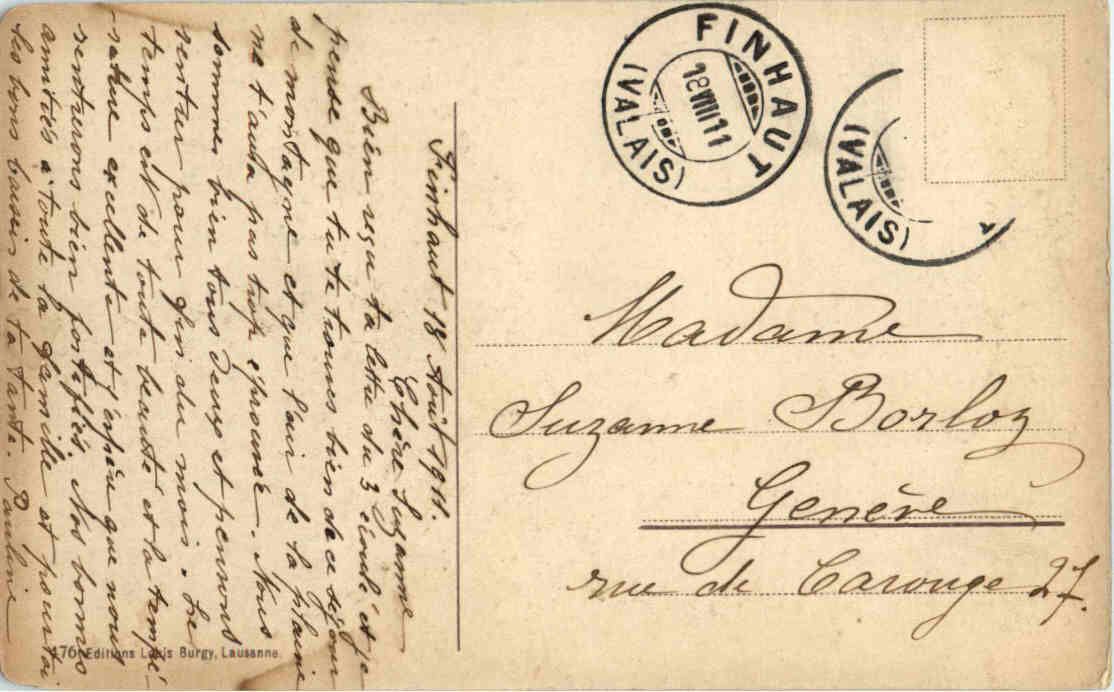 Finhaut 18 Août 1911.
Chère Suzanne
Bien reçu ta lettre du 3 écoulé et je
pense que tu te trouves bien de ce séjour
de montagne et que l'air de la plaine
ne t'aura pas trop éprouvée. Nous
sommes bien tous deux et pensons
rentrer pour fin du mois. Le
temps est de toute beauté et la tempé-
rature excellente et j'espère que nous
rentrerons bien fortifiés. Nos bonnes
amitiés à toute ta famille et pour toi
les bons baisers de ta tante. Pauline
176 Editions Louis Burgy, Lausanne.
FINHAUT
18 VIII 11
(VALAIS)
(VALAIS)
Madame
Suzanne Borloz
Genève
rue de Carouge 27.